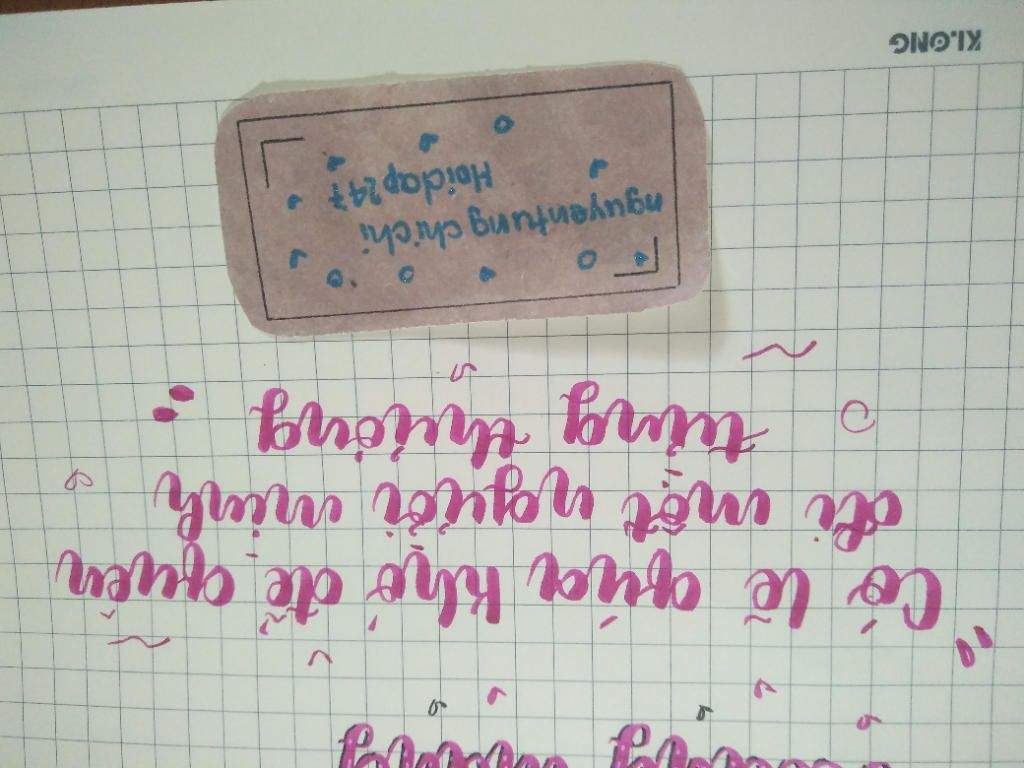 "Có lẽ quá khó để quên
đi một người mình
từng thương"
nguyentungchichi
Hoidap247
KLONG